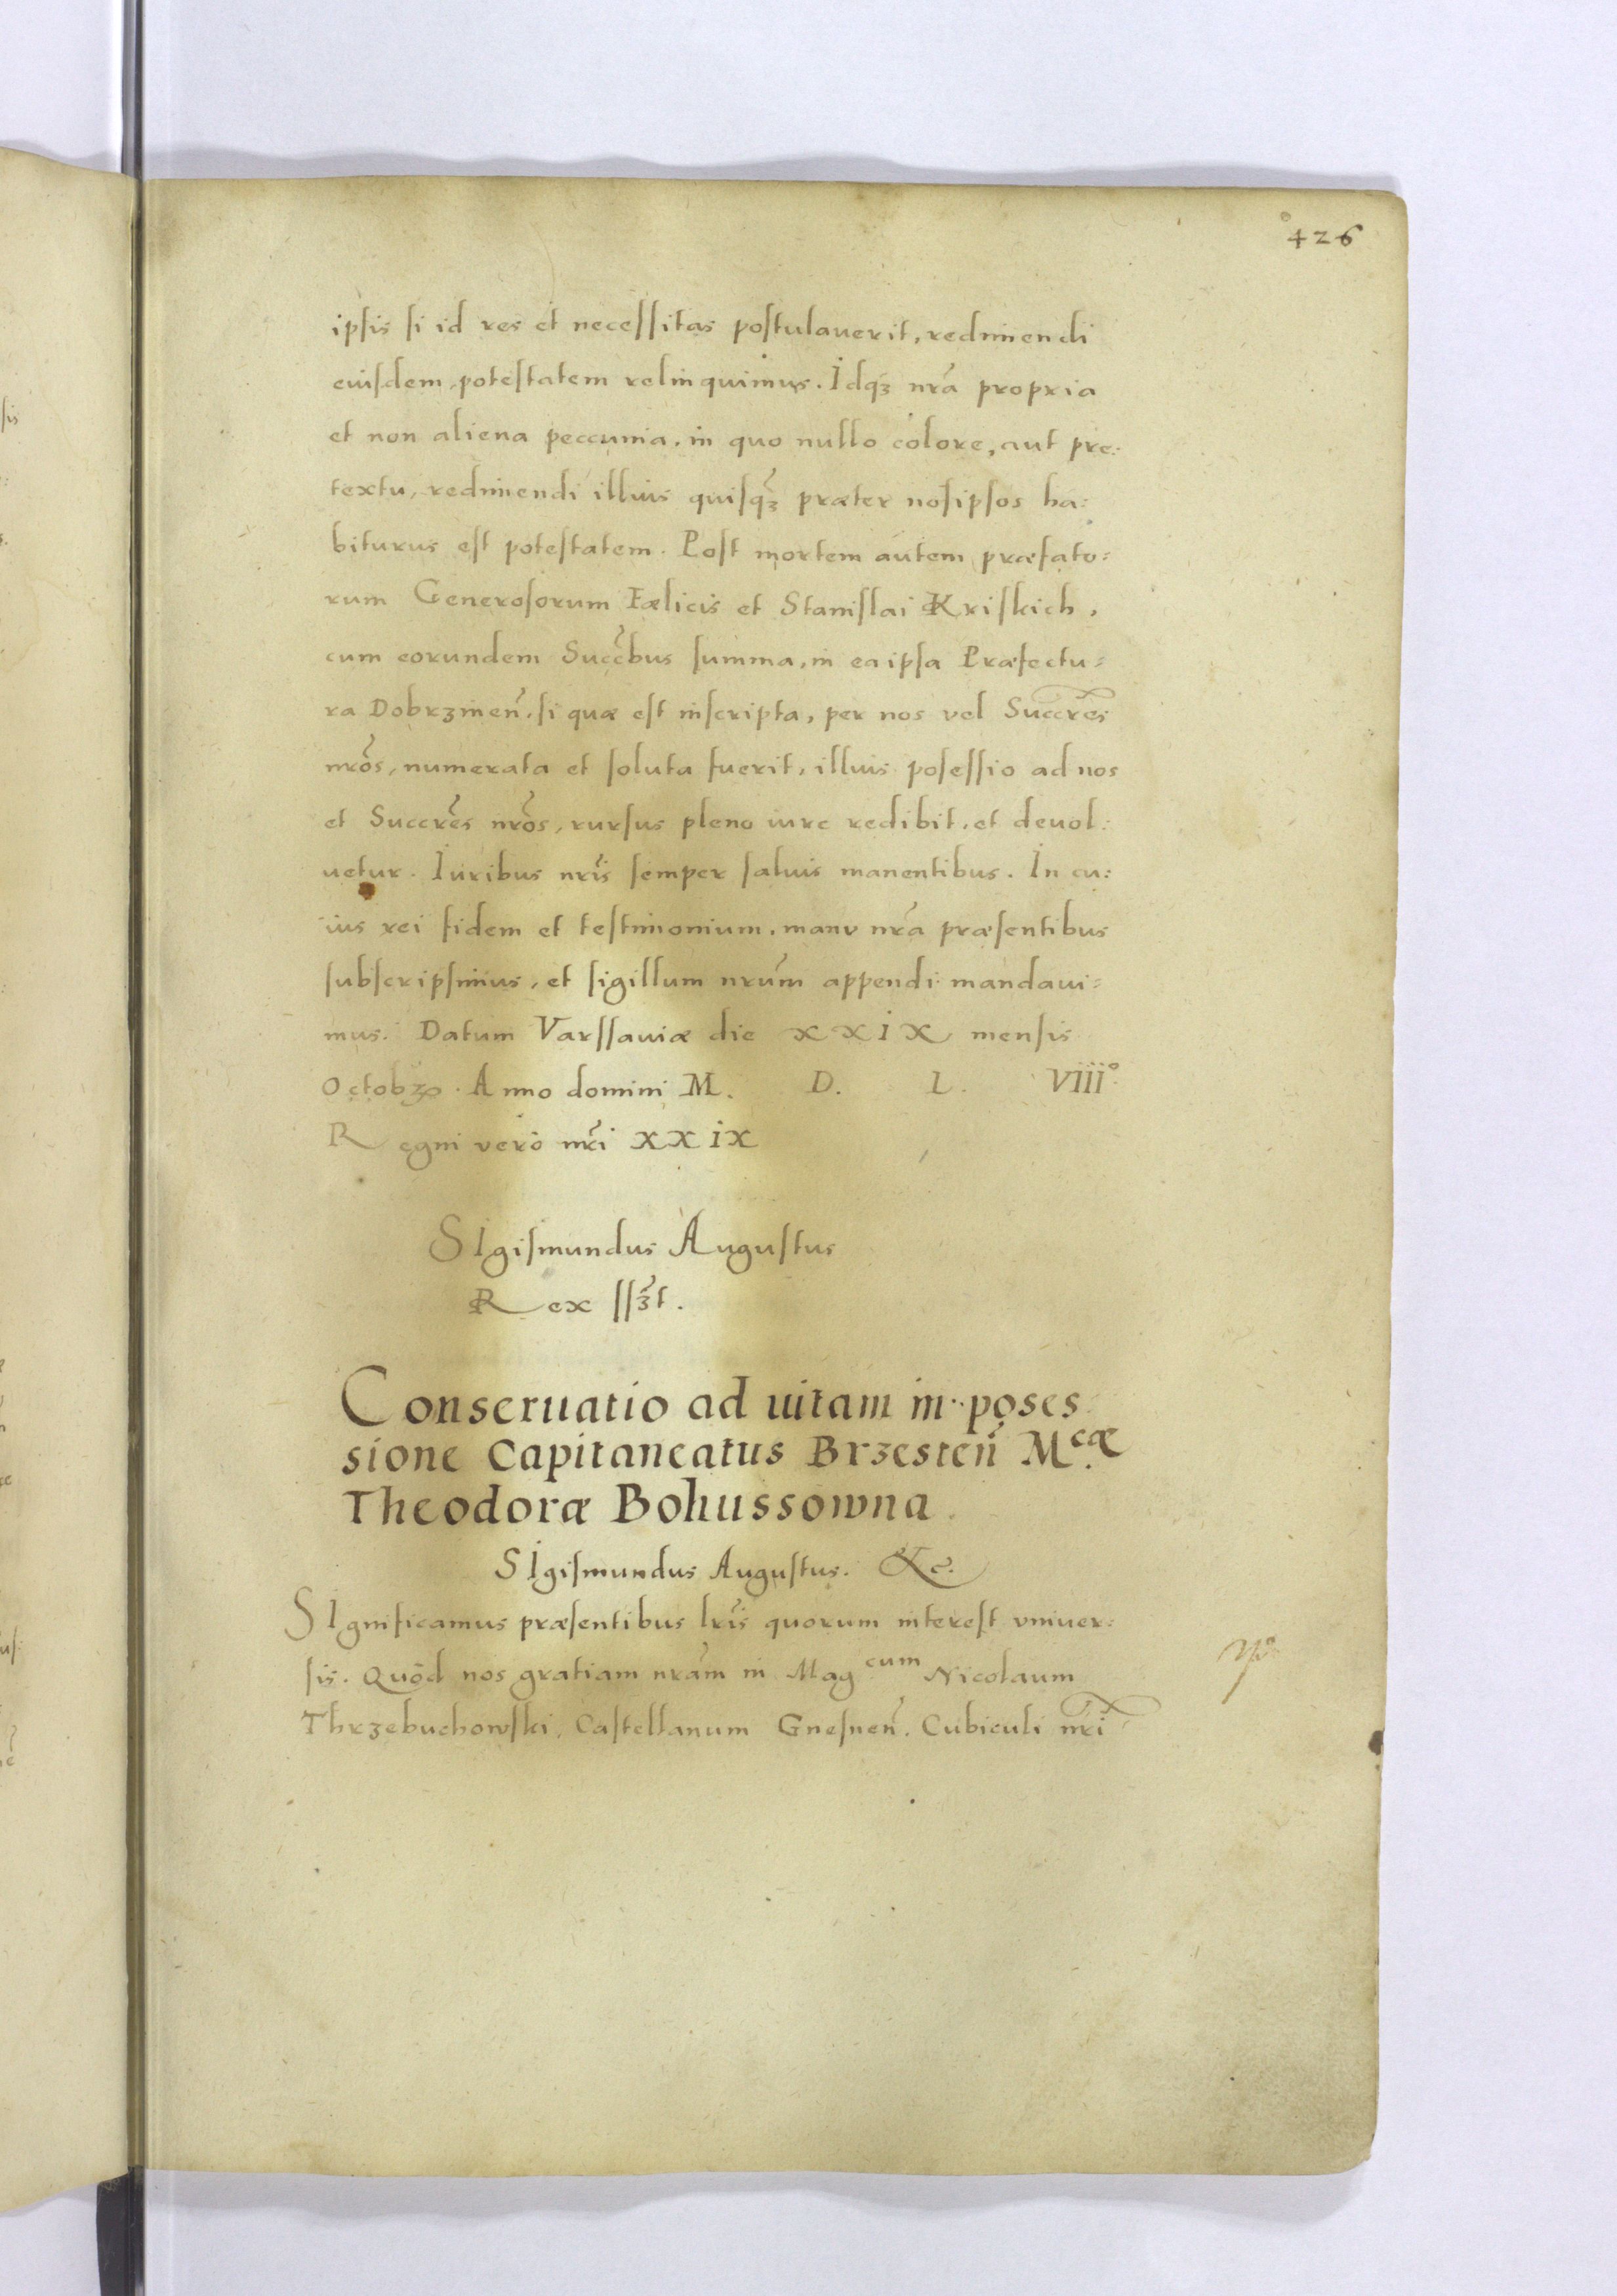 426
ipsis si id res et necessitas postulauerit, redimendi
euisdem, potestatem relinquimus. Idqȝ nr̃a propria
et non aliena peccunia, in quo nullo colore, aut pre:
textu, redimendi illius quisqȝ̃ præter nosipsos ha:
biturus est potestatem. Post mortem autem præfato:
rum Generosorum Fælicis et Stanislai Kriskich,
cum eorundem Succ̃bus summa, in ea ipsa Præfectu:
ra Dobrzineñ. si quæ est inscripta, per nos vel Succr̃es
nr̃os, numerata et soluta fuerit, illius posessio ad nos
et Succr̃es nr̃os, rursus pleno iure redibit, et deuol:
uetur. Iuribus nr̃is semper saluis manentibus. In cu:
ius rei fidem et testimonium, manu nr̃a præsentibus
subscripsimus, et sigillum nr̃um appendi mandaui:
mus. Datum Varssauiæ die XXIX mensis
Octobȝ. Anno domini M. D. L. VIII°
Regni vero nr̃i XXIX
SIgismundus Augustus
Rex ssȝ̃t.
Conseruatio ad uitam in poses
sione Capitaneatus Brzesteñ M.cæ
Theodoræ Bohussowna.
SIgismundus Augustus. &c.
SIgnificamus præsentibus lr̃is quorum interest vniuer:
sis. Quod nos gratiam nr̃am in Mag.cum Nicolaum
Thrzebuchowski, Castellanum Gnesneñ. Cubiculi nr̃i